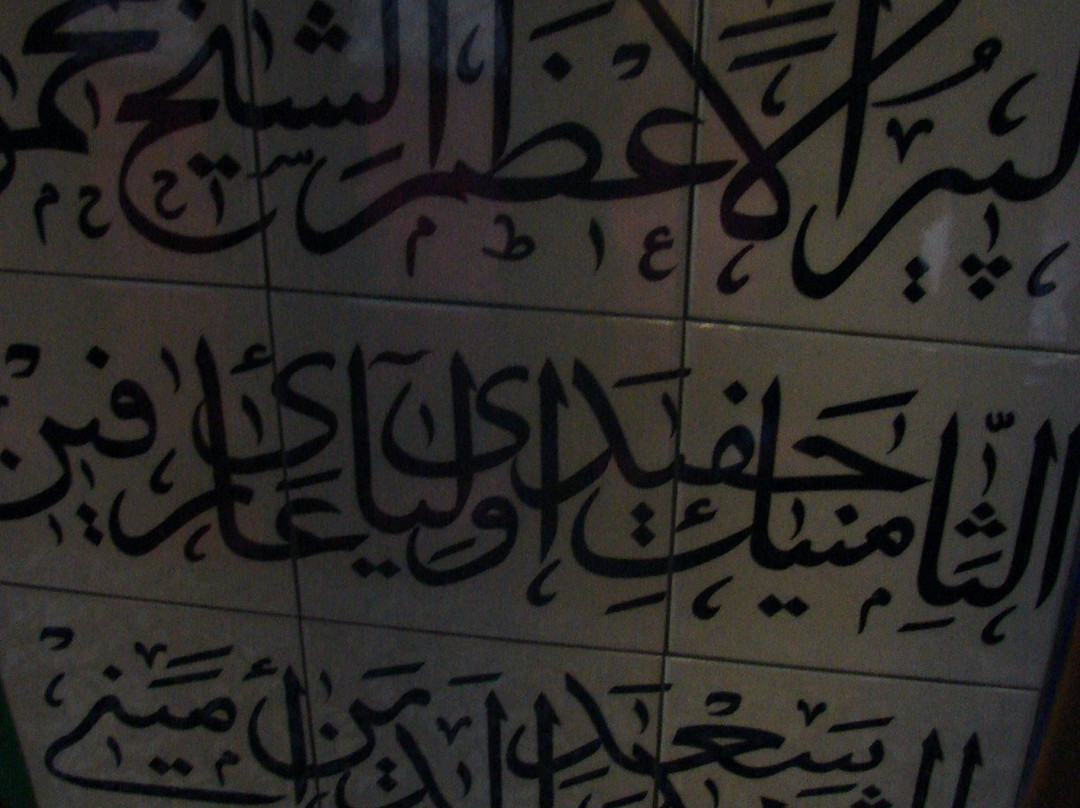 لپیر الاعظم الشیخ محمو
الثامنیك حفیدی اولیای عارفین
سعید الدین أمینی